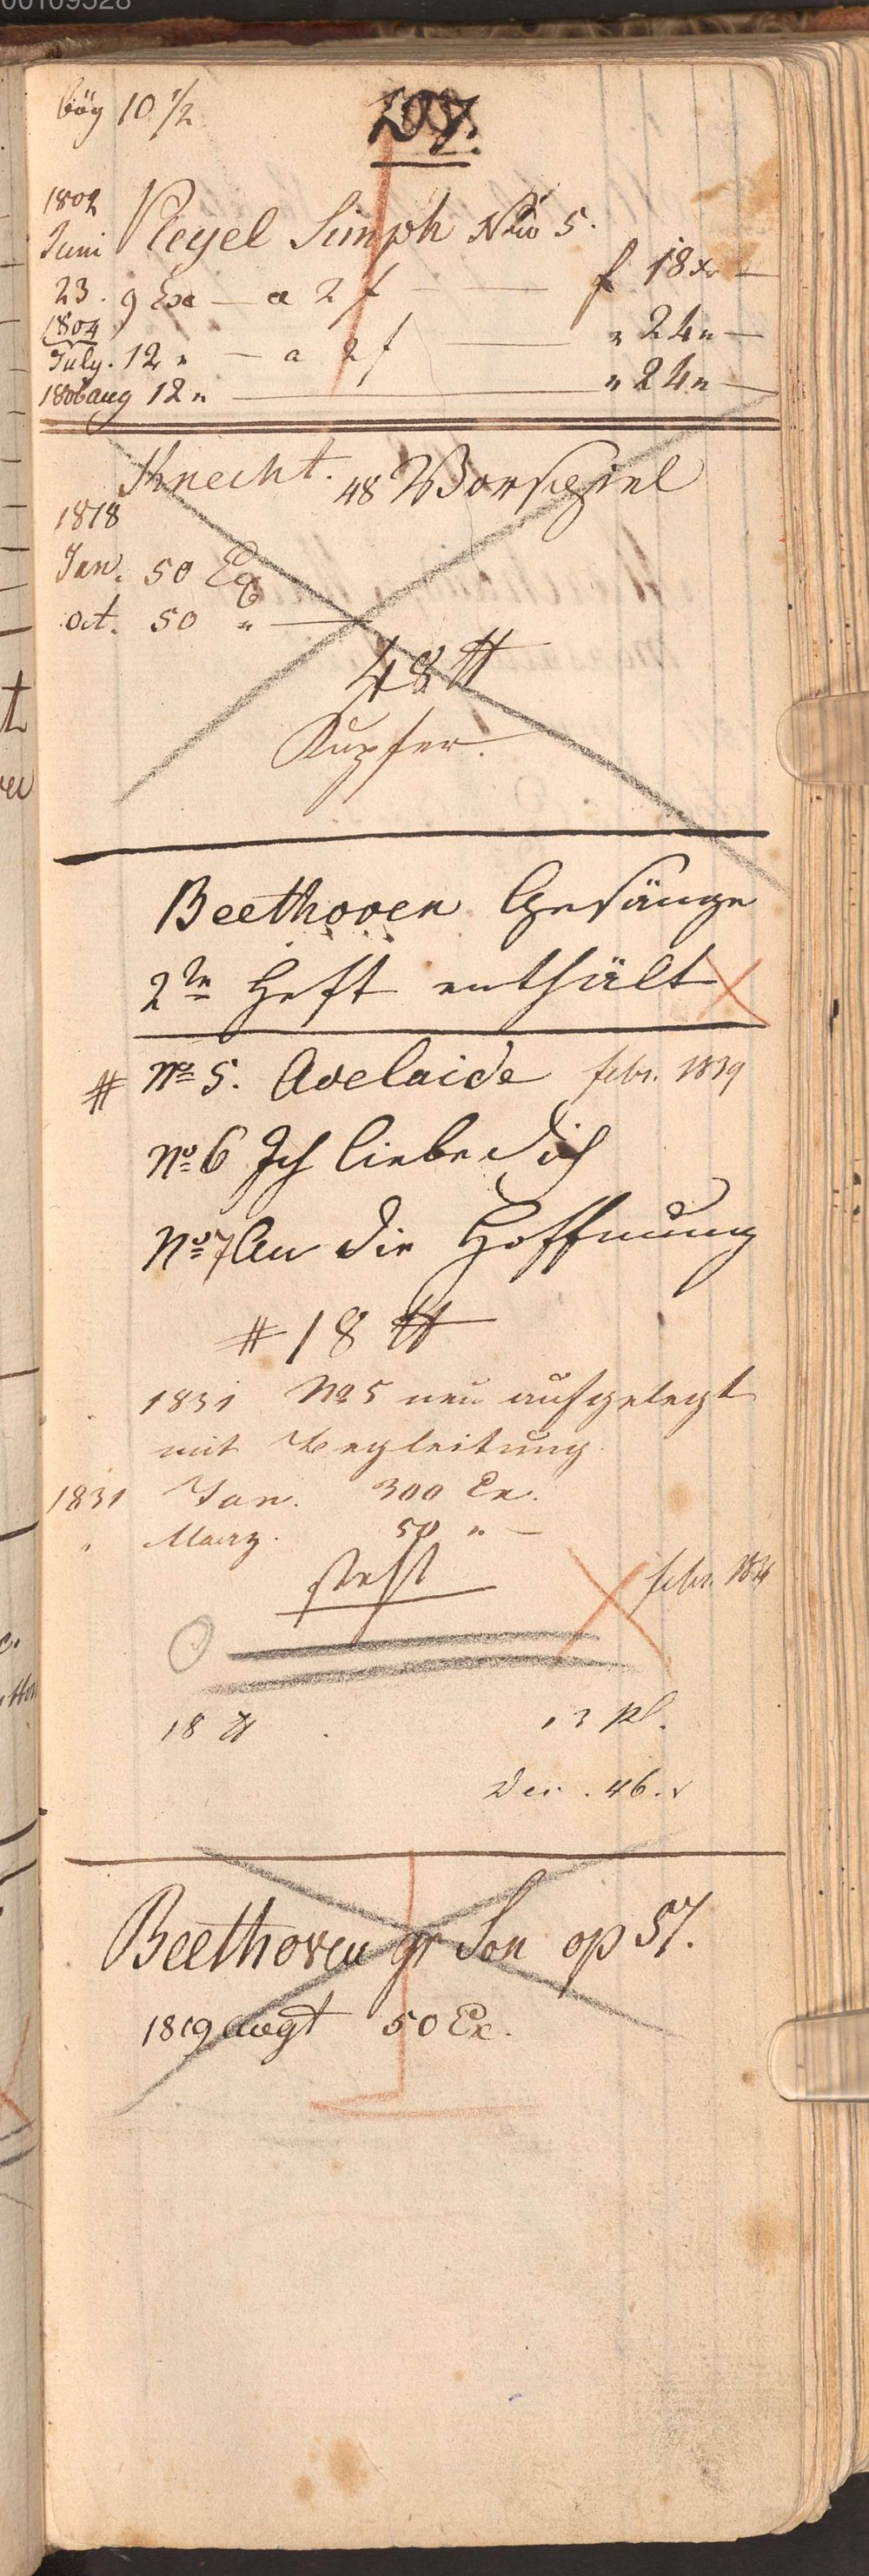 00109528
bög 10 1/2
207.
1802 Pleyel Simph No 5.
Juni
23. 9 Exe — a 2 f — f 18 xr —
1804
July. 12 " — a 2 f — " 24 " —
1806 aug 12 " — " 24 " —
Knecht. 48 Vorspiel
1818
Jan. 50 Ex
oct. 50 " —
48 #
Kupfer.
Beethoven Gesänge
2te Heft enthält
# No 5. Adelaide febr. 1839
No 6 Ich liebe dich
No 7 An die Hoffnung
# 18 #
1831 No 5 neu aufgelegt
mit Begleitung
1831 Jan. 300 Ex.
" Maerz. 50 " —
steht
18 # 13 Pl.
Dec. 46.
Beethoven gr Son op 57.
1819 augt 50 Ex.